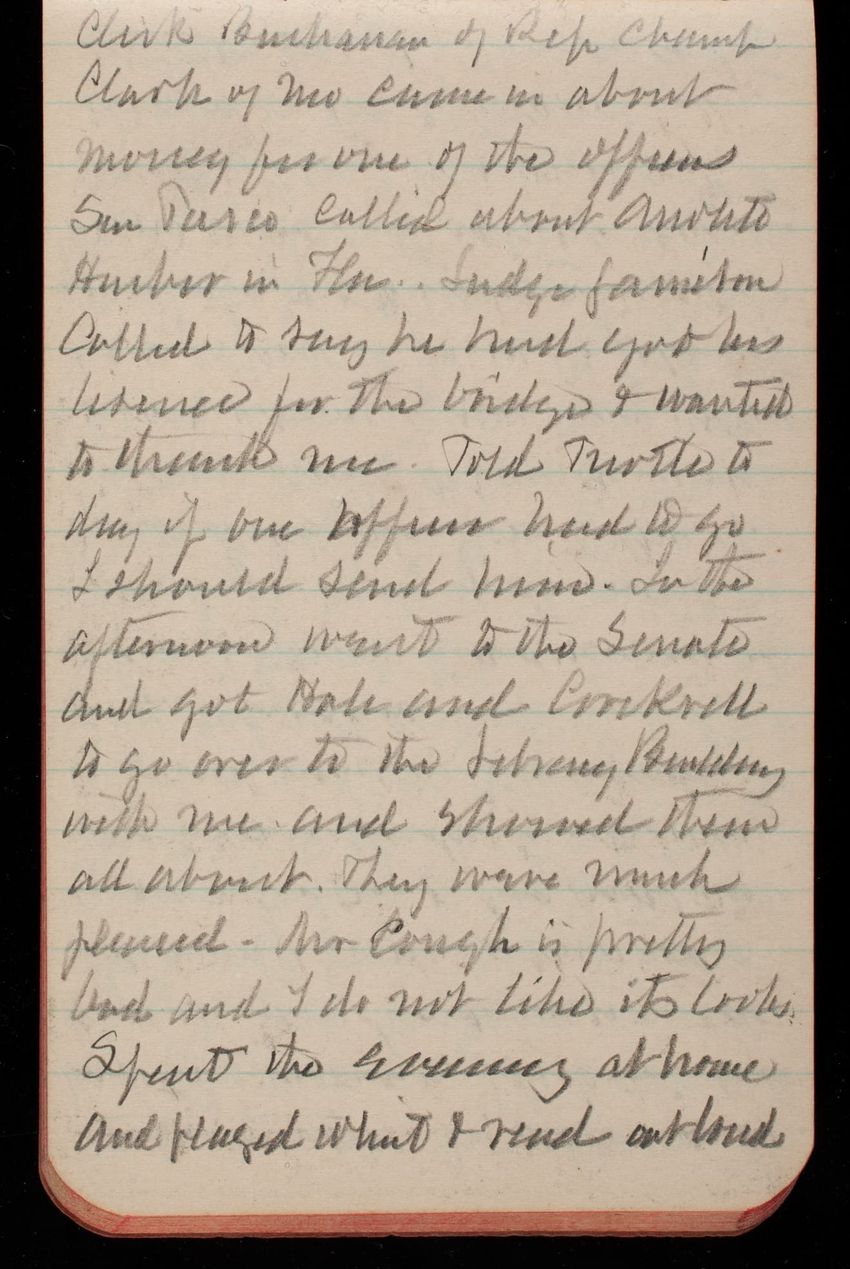 Clerk Buchanan of Rep Champ
Clark of Mo came in about
money for one of the officers
Sen Pasco called about
Harbor in Fla. Judge Jamison
Called to say he had got his
license for the bridge & wanted
to thank me. Told to
day if one officer had to go
I should send him. In the
afternoon went to the Senate
and got Hale and Cockrell
to go over to the Library Building
with me and showed them
all about. They were much
pleased - cough is pretty
bad and I do not like its looks.
Spent the evening at home
and played whist & read out loud